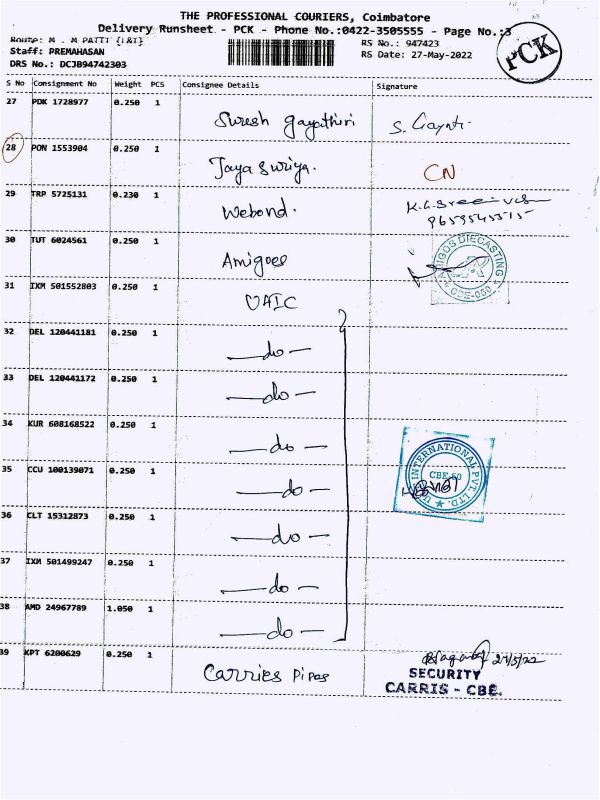 THE PROFESSIONAL COURIERS, Coimbatore
Delivery Runsheet - PCK - Phone No.:0422-3505555 - Page No.:3
Route: M . M PATTI {I&I}
RS No.: 947423
PCK
Staff: PREMAHASAN
RS Date: 27-May-2022
DRS No.: DCJB94742303
S No Consignment No Weight PCS Consignee Details Signature
27 PDK 1728977 0.250 1 Suresh gayathiri S. Gayatri.
28 PON 1553904 0.250 1 Jaya Suriya. CN
29 TRP 5725131 0.230 1 Webond.
9659545515
30 TUT 6024561 0.250 1 Amigoes
AMIGOS DIECASTING CBE-050
31 IXM 501552803 0.250 1 UAIC
32 DEL 120441181 0.250 1 —do—
33 DEL 120441172 0.250 1 —do—
34 KUR 608168522 0.250 1 —do—
INTERNATIONAL PVT. LTD. CBE-50
35 CCU 100139071 0.250 1 —do—
36 CLT 15312873 0.250 1 —do—
37 IXM 501499247 0.250 1 —do—
38 AMD 24967789 1.050 1 —do—
39 KPT 6200629 0.250 1 Carries Pipes 27/5/22
SECURITY
CARRIS - CBE.